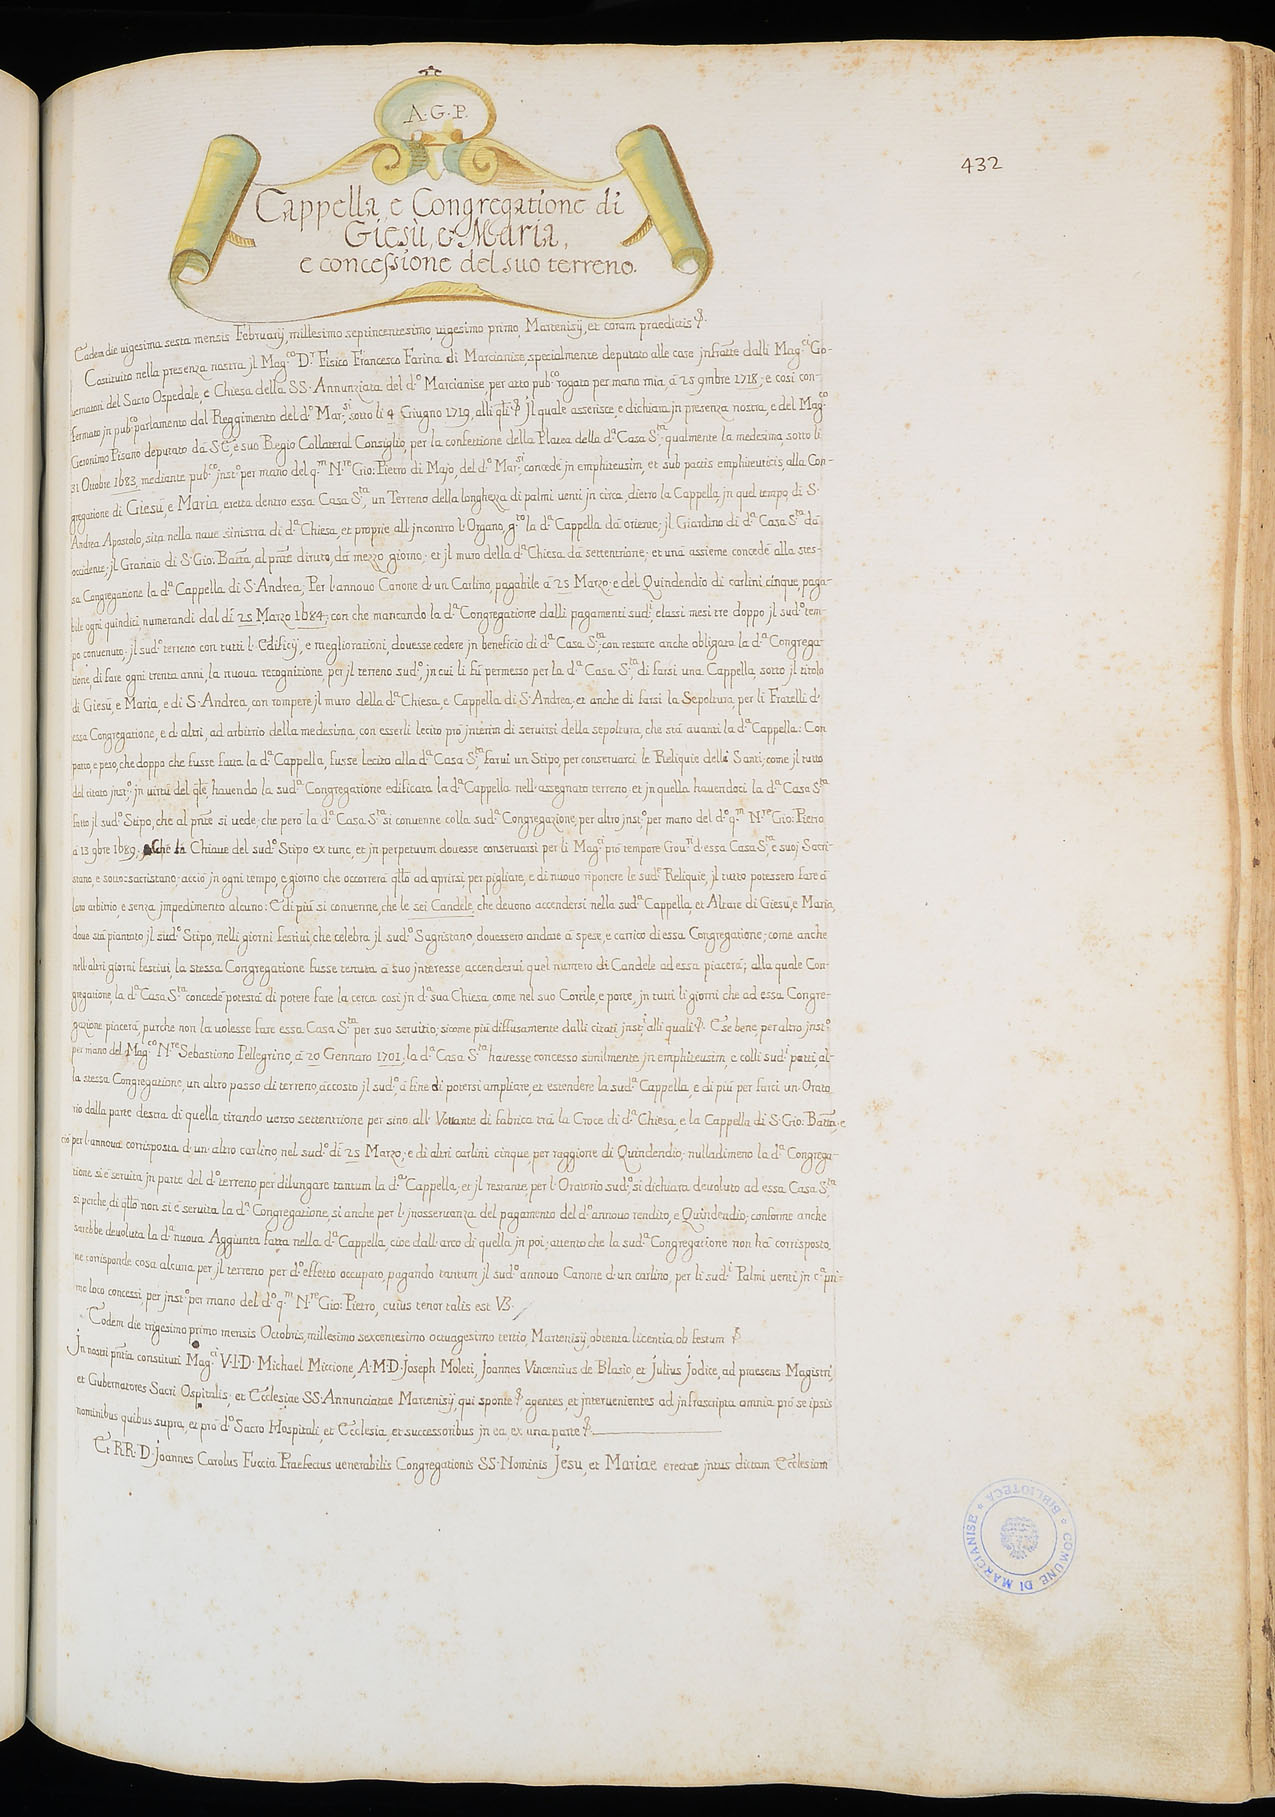 A. G. P.
432
Cappella, e Congregatione di
Giesù, e Maria,
e concessione del suo terreno.
Eadem die vigesima sesta mensis Februarij, millesimo septincentesimo, vigesimo primo, Martenisij, et coram praedictis
Costituito nella presenza nostra jl Mag.co D.r Fisico Francesco Farina di Marcianise, specialmente deputato alle cose jnfratte dalli Mag.ci Go-
vernatori del Sacro Ospedale, e Chiesa della SS. Annunziata del d.o Marcianise, per atto pub.co rogato per mano mia, à 25 9mbre 1718, e così con-
fermato jn pub.co parlamento dal Reggimento del d.o Mar.si, sotto li 4 Giugno 1719, alli q.li jl quale asserisce, e dichiara jn presenza nostra, e del Mag.co
Geronimo Pisano deputato dà S.E. e suo Regio Collateral Consiglio, per la confettione della Platea della d.a Casa S.ta qualmente la medesima, sotto li
31 Ottobre 1683, mediante pub.co jnst.o per mano del q.m N.re Gio: Pietro di Majo, del d.o Mar.si, concedè jn emphiteusim, et sub pactis emphiteuticis, alla Con-
gregatione di Giesù, e Maria, eretta dentro essa Casa S.ta, un Terreno della longhezza di palmi venti jn circa, dietro la Cappella, jn quel tempo, di S.
Andrea Apostolo, sita nella nave sinistra di d.a Chiesa, et proprie all'jncontro l'Organo, g.to la d.a Cappella dà oriente; jl Giardino di d.a Casa S.ta dà
occidente; jl Granaio di S. Gio: Batta, al pnte diruto, dà mezzo giorno; et jl muro della d.a Chiesa dà settentrione; et unà assieme concedè alla stes-
sa Congregatione la d.a Cappella di S. Andrea; Per l'annuo Canone d'un Carlino, pagabile à 25 Marzo, e del Quindendio di carlini cinque, paga-
bile ogni quindici, numerandi dal dì 25 Marzo 1684; con che mancando la d.a Congregatione dalli pagamenti sud.i, classi mesi tre doppo jl sud.o tem-
po convenuto, jl sud.o terreno con tutti l'Edificij, e megliorationi, dovesse cedere jn beneficio di d.a Casa S.ta, con restare anche obligata la d.a Congrega-
tione, di fare ogni trenta anni, la nuova recognitione, per jl terreno sud.o, jn cui li fù permesso per la d.a Casa S.ta, di farsi una Cappella, sotto jl titolo
di Giesù, e Maria, e di S. Andrea, con rompere jl muro della d.a Chiesa, e Cappella di S. Andrea, et anche di farsi la Sepoltura, per li Fratelli d'
essa Congregatione, e d'altri, ad arbitrio della medesima, con esserli lecito prò jnterim di servirsi della sepoltura, che stà avanti la d.a Cappella: Con
patto, e peso, che doppo che fusse fatta la d.a Cappella, fusse lecito alla d.a Casa S.ta farvi un Stipo, per conservarci le Reliquie delli Santi; come jl tutto
dal citato jnst.o; jn virtù del qle, havendo la sud.a Congregatione edificata la d.a Cappella nell'assegnato terreno, et jn quella havendoci la d.a Casa S.ta
fatto jl sud.o Stipo, che al pnte si vede; che però la d.a Casa S.ta si convenne colla sud.a Congregazione, per altro jnst.o per mano del d.o q.m N.re Gio: Pietro
à 13 9bre 1689. Che la Chiave del sud.o Stipo ex tunc, et jn perpetuum dovesse conservarsi per li Mag.ci prò tempore Gov.ri d'essa Casa S.ta e suoj Sacri-
stano, e sotto sacristano; acciò jn ogni tempo, e giorno che occorrerà qllo ad aprirsi per pigliare, e di nuovo riponere le sud.e Reliquie, jl tutto potessero fare à
loro arbitrio, e senza jmpedimento alcuno: E di più si convenne, che le sei Candele, che devono accendersi nella sud.a Cappella, et Altare di Giesù, e Maria,
dove stà piantato jl sud.o Stipo, nelli giorni festivi, che celebra jl sud.o Sagristano, dovessero andare à spese, e carrico di essa Congregatione; come anche
nell'altri giorni festivi, la stessa Congregatione fusse tenuta à suo jnteresse, accendervi quel numero di Candele ad essa piacerà; alla quale Con-
gregatione, la d.a Casa S.ta concedè potestà di potere fare la cerca così jn d.a sua Chiesa, come nel suo Cortile, e porte, jn tutti li giorni che ad essa Congre-
gazione piacerà, purche non la volesse fare essa Casa S.ta per suo servitio; sicome più diffusamente dalli citati jnst.i alli quali. E se bene, per altro jnst.o
per mano del Mag.co N.re Sebastiano Pellegrino, à 20 Gennaro 1701, la d.a Casa S.ta havesse concesso similmente jn emphiteusim, e colli sud.i patti, al-
la stessa Congregatione, un altro passo di terreno, accosto jl sud.o, à fine di potersi ampliare, et estendere la sud.a Cappella, e di più per farci un Orato-
rio dalla parte destra di quella, tirando verso settentrione per sino all'Voltante di fabrica trà la Croce di d.a Chiesa, e la Cappella di S. Gio: Batta, e
ciò per l'annoua corrisposta d'un altro carlino, nel sud.o dì 25 Marzo, e di altri carlini cinque, per raggione di Quindendio; nulladimeno la d.a Congrega-
tione si è servita jn parte del d.o terreno, per dilungare tantum la d.a Cappella, et jl restante, per l'Oratorio sud.o, si dichiara devoluto ad essa Casa S.ta
sì perche, di qllo non si è servita la d.a Congregatione, sì anche per l'jnosservanza del pagamento del d.o annuo rendito, e Quindendio; conforme anche
sarebbe devoluta la d.a nuova Aggiunta fatta nella d.a Cappella, cioè dall'arco di quella jn poi; attento che la sud.a Congregatione non hà corrisposto,
ne corrisponde cosa alcuna per jl terreno per d.o effetto occupato, pagando tantum jl sud.o annuo Canone d'un carlino, per li sud.i Palmi venti jn c.a pri-
mo loco concessi, per jnst.o per mano del d.o q.m N.re Gio: Pietro, cuius tenor talis est VZ.
Eodem die trigesimo primo mensis Octobris, millesimo sexcentesimo octuagesimo tertio, Martenisij, obtenta licentia ob festum
Jn nostri pntia constituti Mag.ci V.I.D. Michael Miccione, A.M.D. Joseph Moleti, Joannes Vincentius de Blasio, et Julius Jodice, ad praesens Magistri,
et Gubernatores Sacri Ospitalis, et Ecclesiae SS. Annunciatae Martenisij, qui sponte, agentes, et jntervenientes ad jnfrascripta omnia prò se ipsis
nominibus quibus supra, et prò d.o Sacro Hospitali, et Ecclesia, et successoribus jn ea, ex una parte
Et R.R.D. Joannes Carolus Fuccia Praefectus venerabilis Congregationis SS. Nominis Jesu, et Mariae erectae jntus dictam Ecclesiam
COMUNE DI MARCIANISE * BIBLIOTECA *